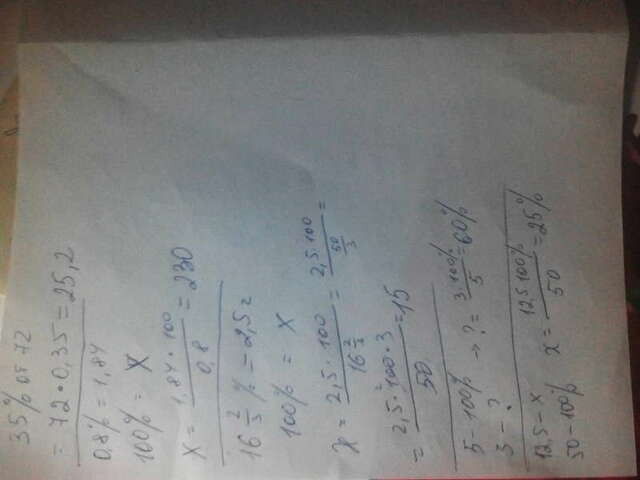 35% от 72
= 72·0,35=25,2
0,8% = 1,84
100% = X
X = 1,84·100/0,8 = 230
16 2/3 % = 2,5г
100% = X
X = 2,5·100/16 2/3 = 2,5·100/50/3 =
= 2,5·100·3/50 =15
5-100% → ?= 3·100%/5=60%
3-?
12,5-x x= 12,5·100%/50=25%
50-100%